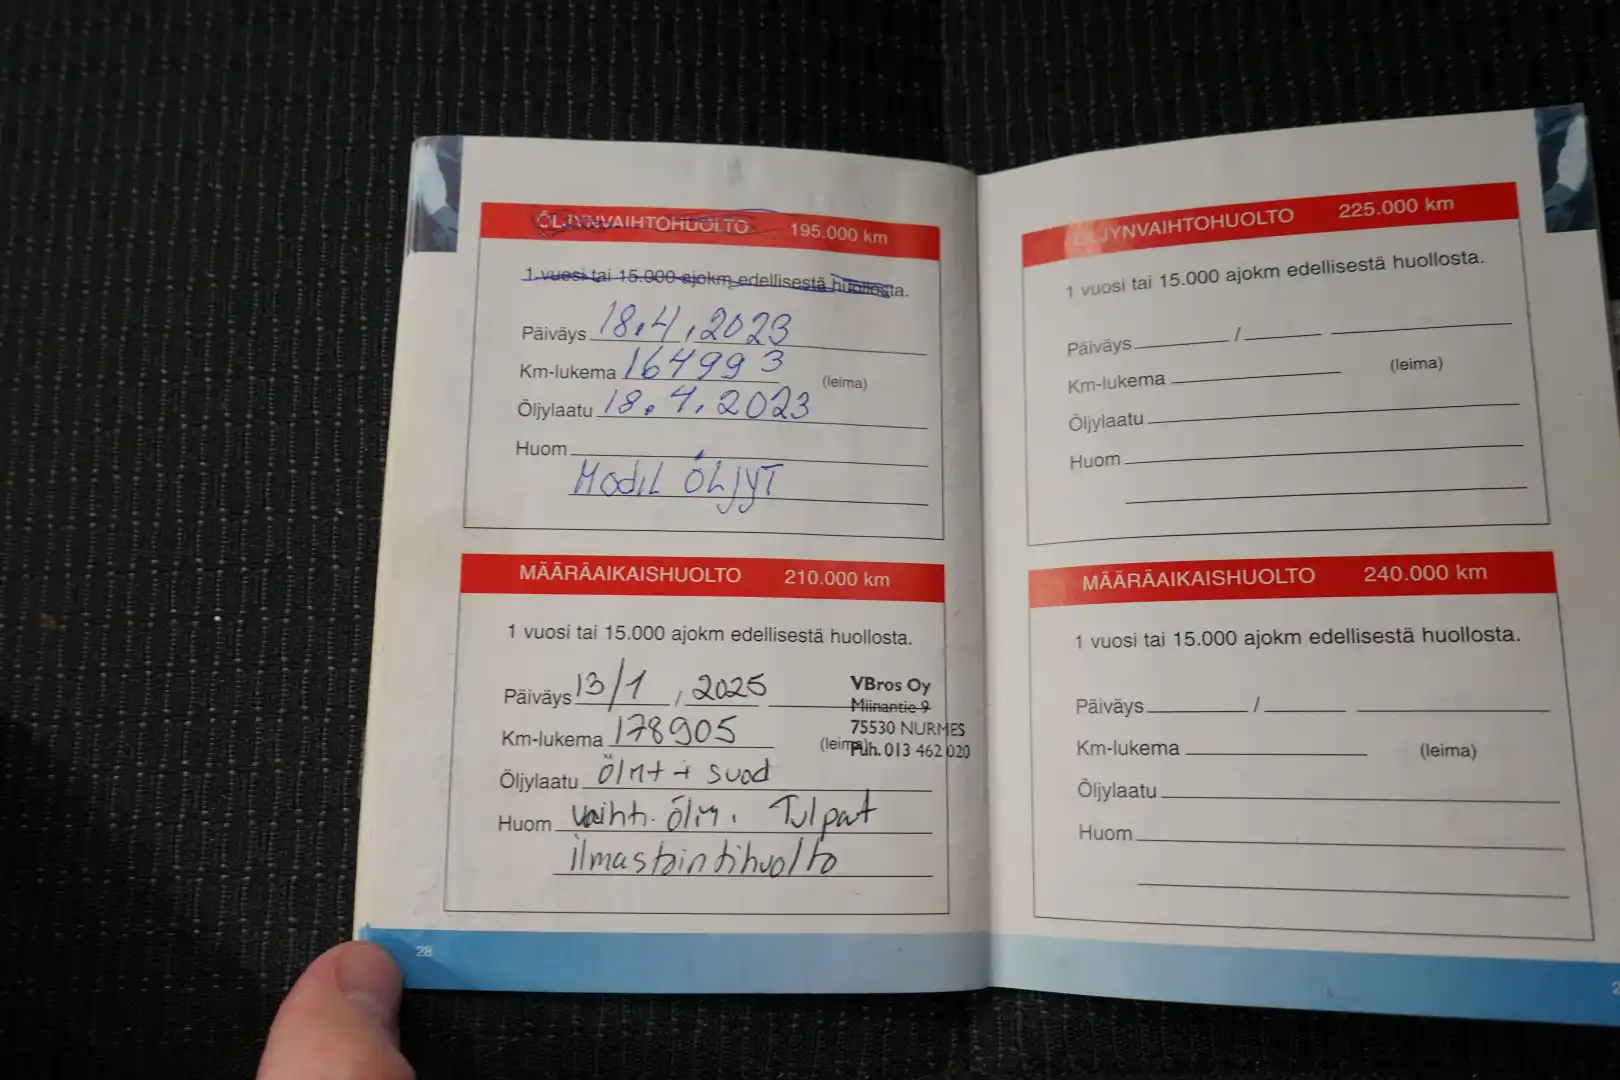 ÖLJYNVAIHTOHUOLTO 195.000 km
1 vuosi tai 15.000 ajokm edellisestä huollosta.
Päiväys 18.4.2023
Km-lukema 164993
(leima)
Öljylaatu 18.4.2023
Huom
ÖLJYT
MÄÄRÄAIKAISHUOLTO 210.000 km
1 vuosi tai 15.000 ajokm edellisestä huollosta.
Päiväys 13/1 / 2025
Km-lukema 178905
(leima)
VBros Oy
Miinantie 9
75530 NURMES
Puh. 013 462 020
Öljylaatu + suod
Huom vaiht. Tulpat
ilmastointihuolto
28
ÖLJYNVAIHTOHUOLTO 225.000 km
1 vuosi tai 15.000 ajokm edellisestä huollosta.
Päiväys /
Km-lukema (leima)
Öljylaatu
Huom
MÄÄRÄAIKAISHUOLTO 240.000 km
1 vuosi tai 15.000 ajokm edellisestä huollosta.
Päiväys /
Km-lukema (leima)
Öljylaatu
Huom